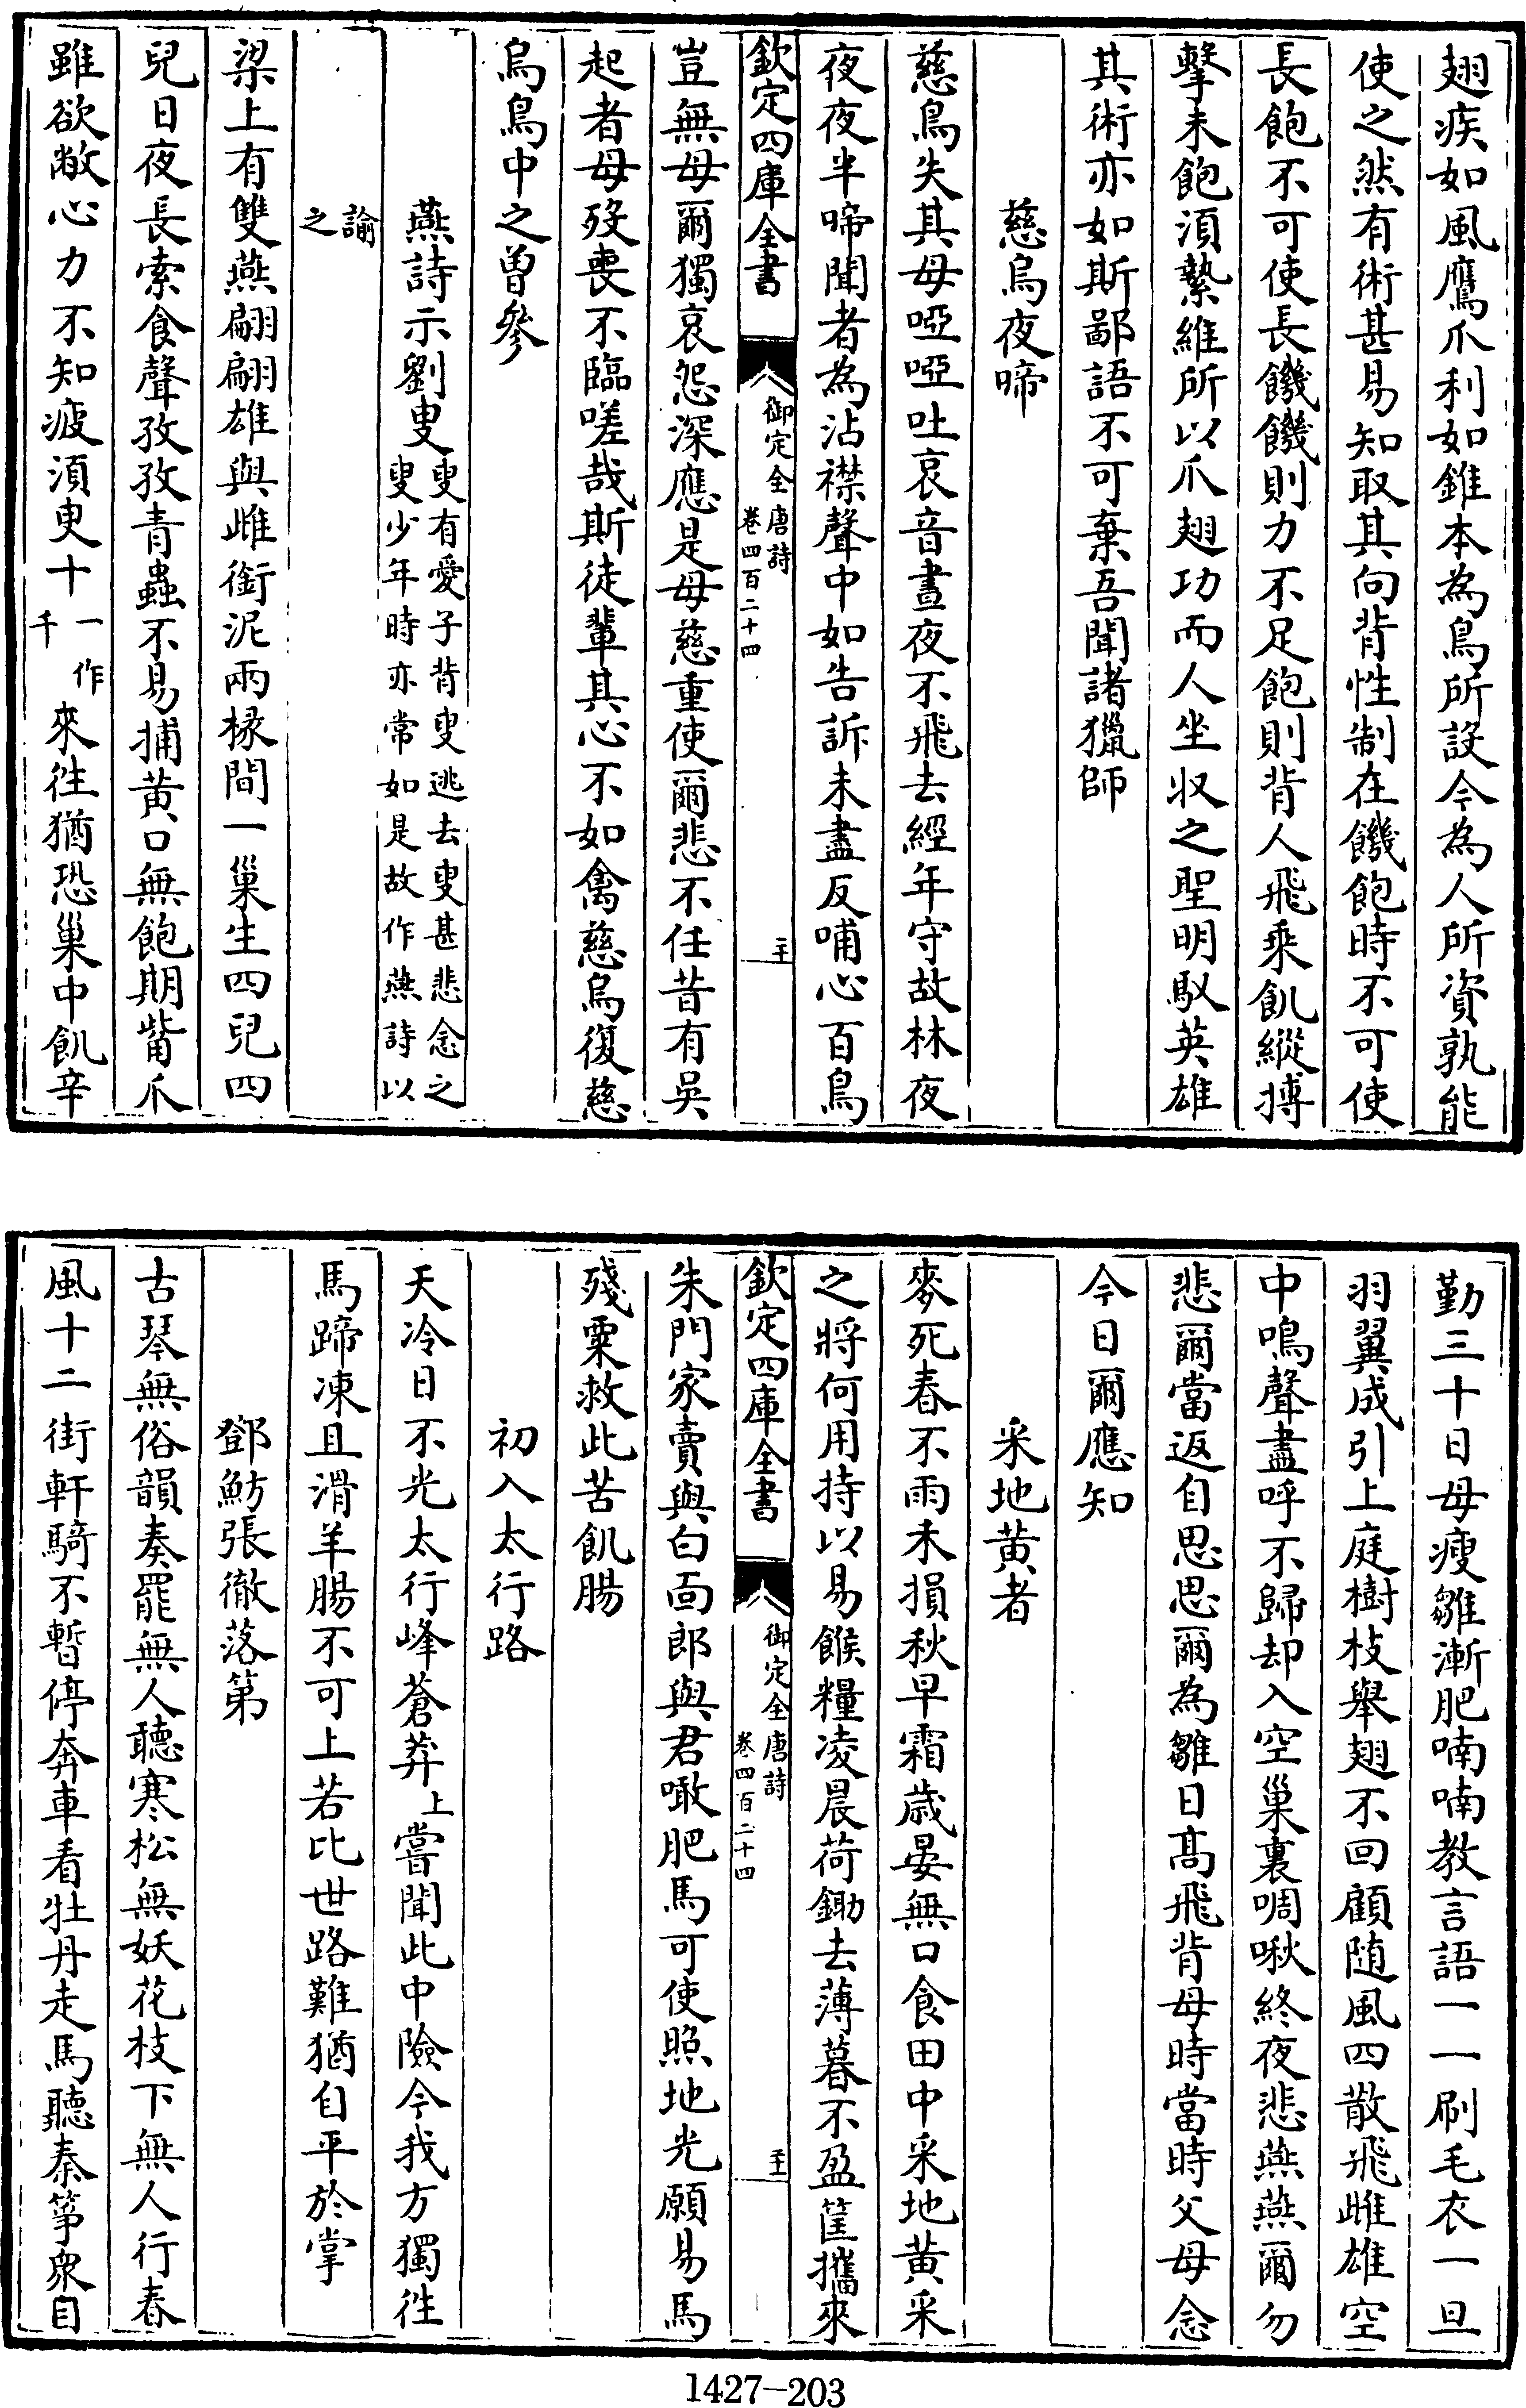 翅疾如風鷹爪利如錐本為鳥所設今為人所資孰能
使之然有術甚易知取其向背性制在饑飽時不可使
長飽不可使長饑饑則力不足飽則背人飛乘飢縱搏
擊未飽須縶維所以爪翅功而人坐収之聖明馭英雄
其術亦如斯鄙語不可棄吾聞諸獵師
慈烏夜啼
慈烏失其母啞啞吐哀音晝夜不飛去經年守故林夜
夜夜半啼聞者為沾襟聲中如告訴未盡反哺心百鳥
欽定四庫全書
御定全唐詩
卷四百二十四
二十
豈無母爾獨哀怨深應是母慈重使爾悲不任昔有吳
起者母歿喪不臨嗟哉斯徒輩其心不如禽慈烏復慈
烏鳥中之曾參
燕詩示劉叟
叟有愛子背叟逃去叟甚悲念之
叟少年時亦常如是故作燕詩以
諭
之
梁上有雙燕翩翩雄與雌銜泥兩椽間一巢生四兒四
兒日夜長索食聲孜孜青蟲不易捕黃口無飽期觜爪
雖欲敝心力不知疲須臾十一作千來往猶恐巢中飢辛
勤三十日母瘦雛漸肥喃喃教言語一一刷毛衣一旦
羽翼成引上庭樹枝舉翅不回顧随風四散飛雌雄空
中鳴聲盡呼不歸却入空巢裏啁啾終夜悲燕燕爾勿
悲爾當返自思思爾為雛日髙飛背母時當時父母念
今日爾應知
采地黄者
麥死春不雨禾損秋早霜歳晏無口食田中采地黄采
之將何用持以易餱糧凌晨荷鋤去薄暮不盈筐攜來
欽定四庫全書
御定全唐詩
卷四百二十四
二十一
朱門家賣與白靣郎與君噉肥馬可使照地光願易馬
殘粟救此苦飢腸
初入太行路
天冷日不光太行峰蒼莽上嘗聞此中險今我方獨往
馬蹄凍且滑羊腸不可上若比世路難猶自平於掌
鄧魴張徹落第
古琴無俗韻奏罷無人聽寒松無妖花枝下無人行春
風十二街軒騎不暫停奔車看牡丹走馬聽秦箏衆目
1427-203